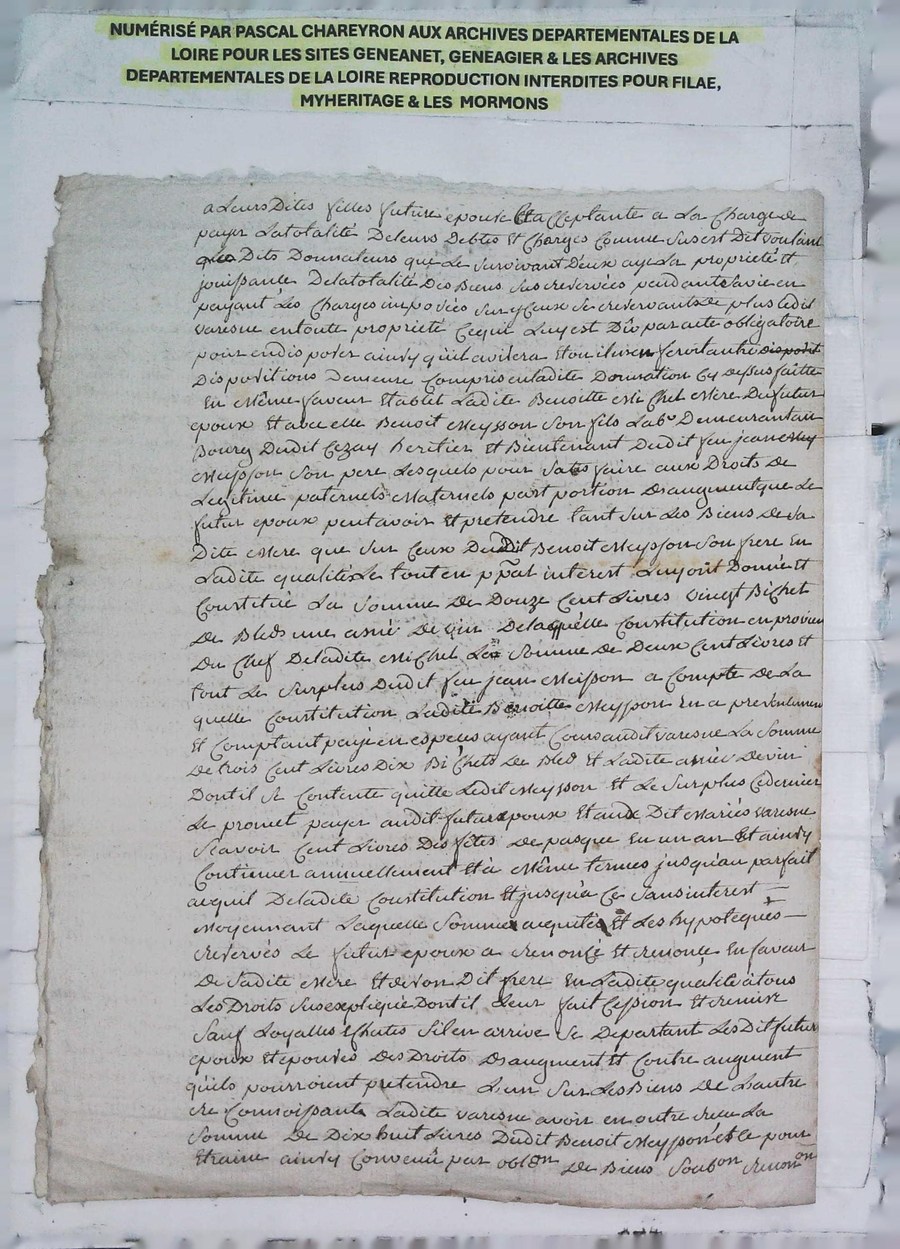 NUMÉRISÉ PAR PASCAL CHAREYRON AUX ARCHIVES DEPARTEMENTALES DE LA
LOIRE POUR LES SITES GENEANET, GENEAGIER & LES ARCHIVES
DEPARTEMENTALES DE LA LOIRE REPRODUCTION INTERDITES POUR FILAE,
MYHERITAGE & LES MORMONS
a Leurs Dites filles future epouse Et acceptante a La Charge de
payer La totalité De leurs Debtes Et Charges Comme Sus est Dit voulant
Dits Donnateurs que Le Survivant D'eux aye La proprieté Et
jouissante De la totalité Des Biens Sus reservées pendant Sa vie en
payant Les Charges imposées Sur yceux Se reservant De plus Ledit
varesne en toute proprieté Ce qui Luy est Dû par acte obligatoire
pour en disposer ainsy qu'il avisera Et ou il feroit autre
Dispositions Demeure Compris en ladite Donnation Cy Dessus faitte
En Même faveur Etablit Ladite Benoitte Mi Chel Mere Du futur
epoux Et avec elle Benoit Meysson Son fils Labr Demeurant au
Bourg Dudit Cezay heritier Et Bientenant Dudit feu jean
Meysson Son pere Lesquels pour Satisfaire aux Droits De
Legitime paternels Maternels part portion D'augment que Le
futur epoux peut avoir Et pretendre tant Sur Les Biens De Sa
Dite Mere que Sur Ceux Dudit Benoit Meysson Son frere En
Ladite qualité Le tout en ppal interest Luy ont Donné Et
Constitué La Somme De Douze Cent Livres vingt Bichet
De Bled une asnée De vin De laquelle Constitution en provien
Du Chef De ladite Michel La Somme De Deux Cent Livres Et
tout Le Surplus Dudit feu jean Meisson a Compte De La
quelle Constitution Ladite Benoitte Meysson En a presentement
Et Comptant payé en especes ayant Cours audit varesne La Somme
De trois Cent Livres Dix Bichets De Bled Et Ladite asnée De vin
Dont il Se Contente quitte Ledit Meysson Et Le Surplus Ce dernier
Le promet payer audit futur epoux Et aux Dit Mariés varesne
Scavoir Cent Livres Des fêtes De pasque En un an Et ainsy
Continuer annuellement Et à Même termes jusqu'au parfait
acquit De ladite Constitution Et jusqu'a Ce Sans interest
Moyennant Laquelle Somme Et Les hypoteques
reservés Le futur epoux a renoncé Et renonce En faveur
De Sadite Mere Et de Son Dit frere En Ladite qualité à tous
Les Droits Sus expliqué Dont il Leur fait Cession Et remise
Sauf Loyalles Echutes S'il en arrive Se Departant Les Dit futur
epoux Et epouses Des Droits D'augment Et Contre augment
qu'ils pourroient pretendre L'un Sur Les Biens De L'autre
re Connoissant Ladite varesne avoir en outre reçu La
Somme De Dix huit Livres Dudit Benoit Meysson Et Ce pour
Etraine ainsy Convenû par oblon De Biens Soubon renonon